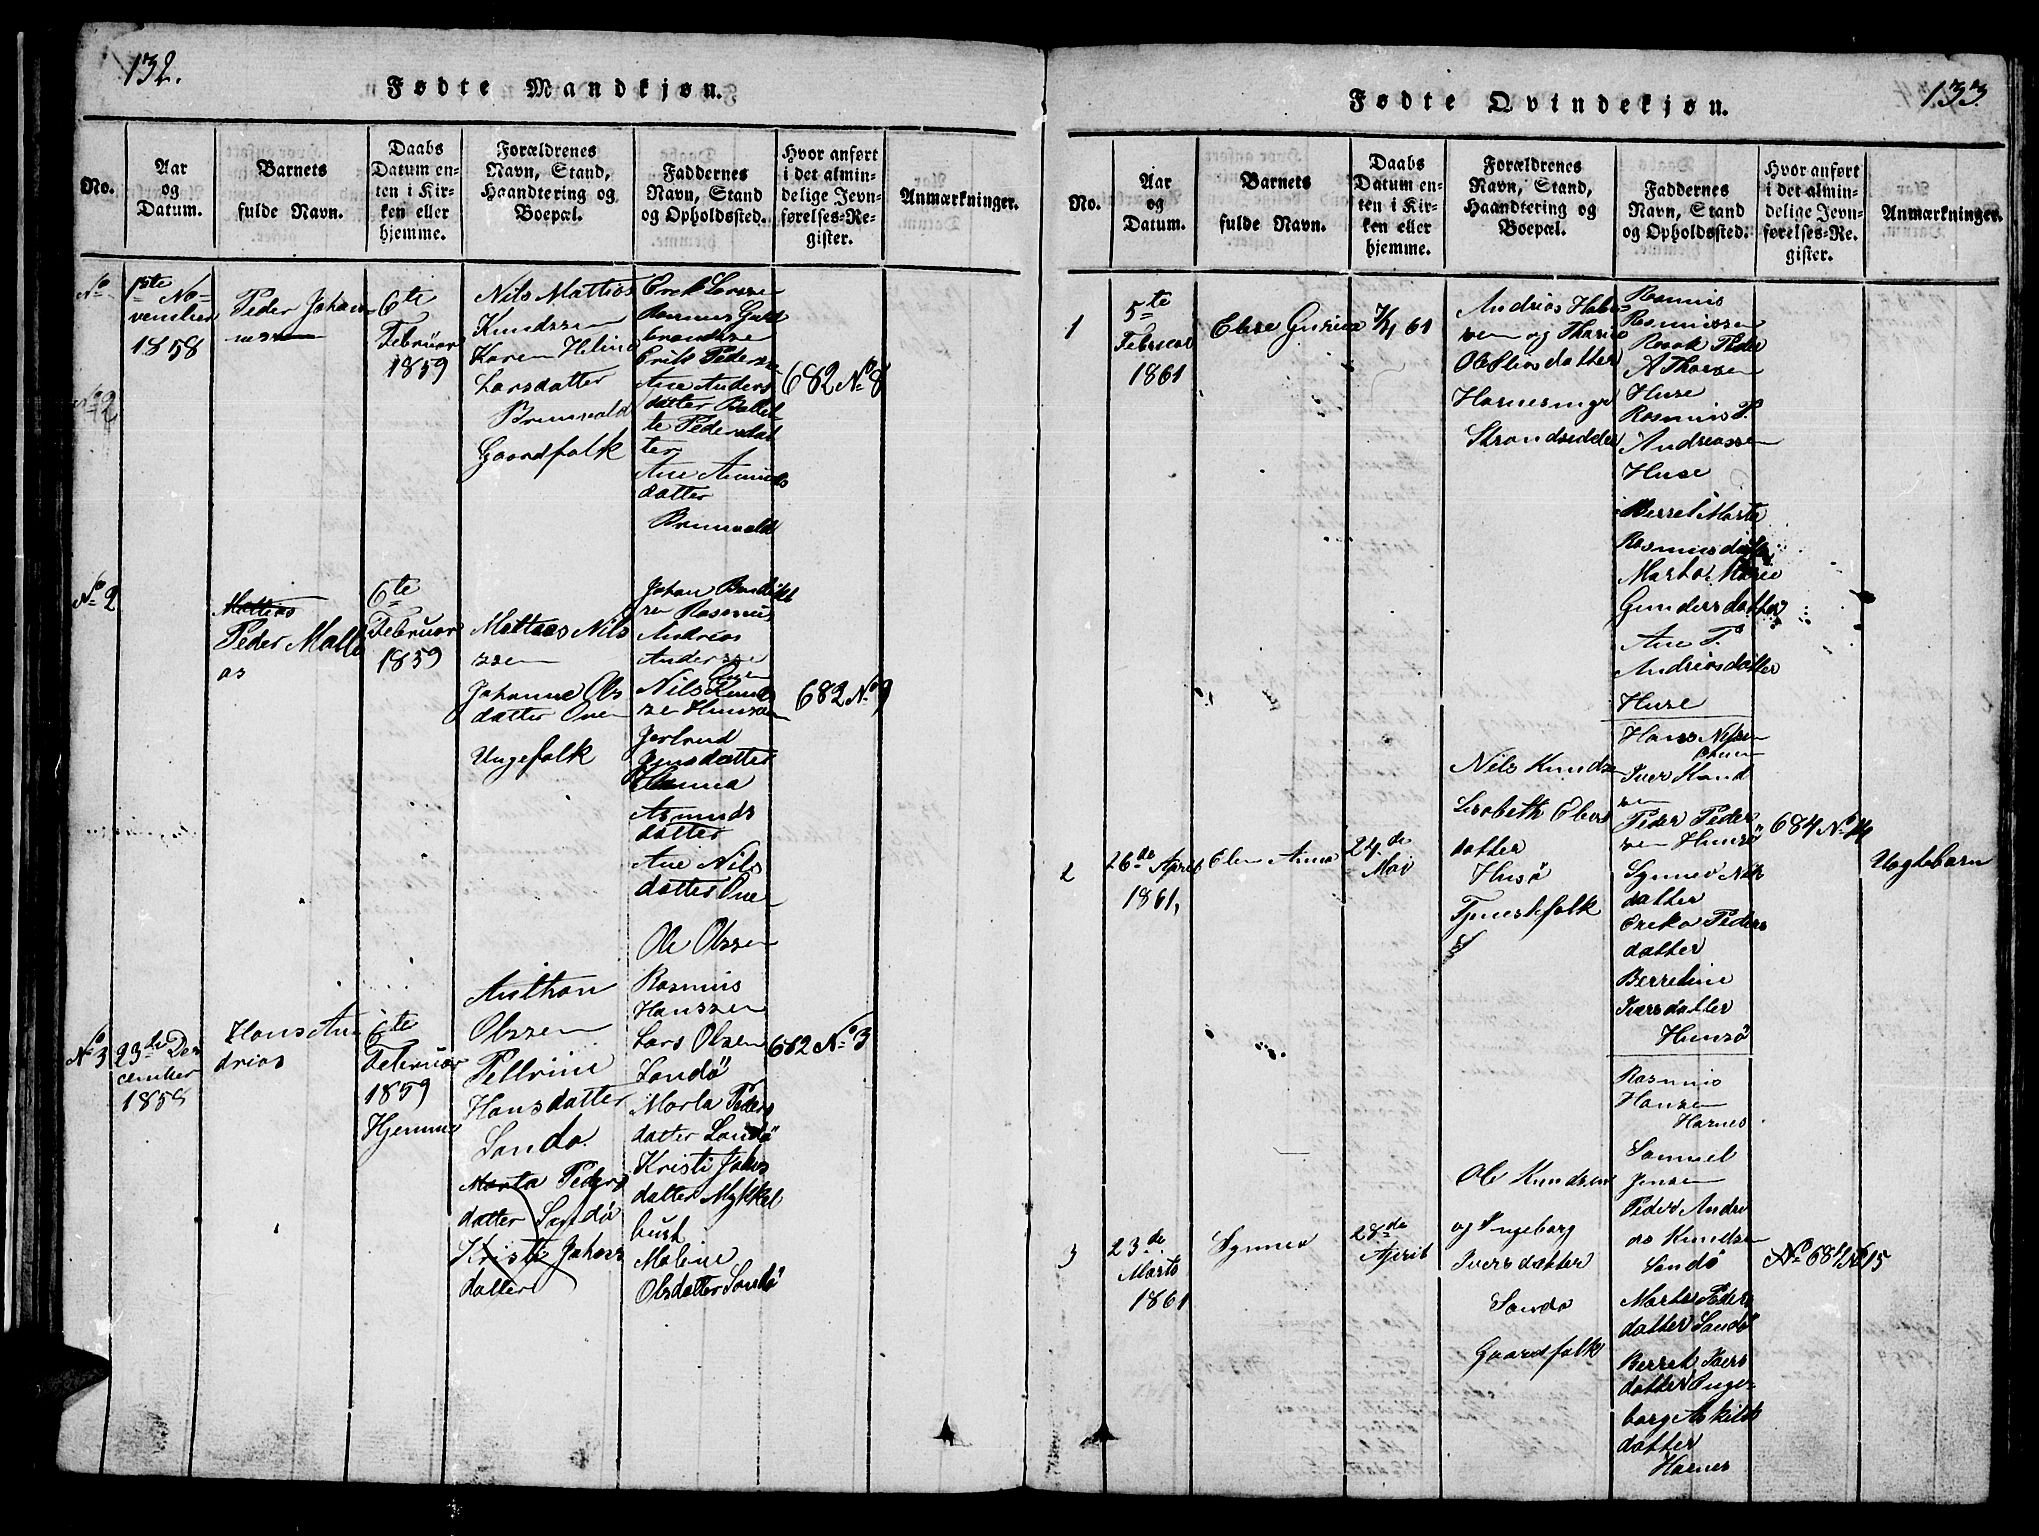 132.
Fødte Mandkjøn.
No.
Aar
og
Datum.
Barnets
fulde Navn.
Daabs
Datum en-
ten i Kir-
ken eller
hjemme.
Forældrenes
Navn, Stand,
Haandtering og
Boepæl.
Faddernes
Navn, Stand
og Opholdssted.
Hvor anført
i det almin-
delige Jevn-
førelses-Re-
gister.
Anmærkninger.
No
1ste No-
vember
1858
Peder Johan
6te
Februar
1859
Nils Mattias
Knudssen
Karen Heline
Larsdatter
Brunvald
Gaardfolk
Erik Larssen
Rasmus Gud
brandsse
Erik Pederse
Ane Anders
datter
te Pedersdat
ter
Ane Asmunds
datter
Brunvald
682 No 8
No 2
No 2
Mattias
Peder Matti
as
6te
Februar
1859
Mattias Nils
ssen
Johanne Ols
datter One
Ungefolk
Johan Bendikt
se Rasmus
Andrias
Anderse
One
Nils Knud
se Hunsøen
Gertrud
Jensdatter
Hanna
Asmunds
datter
Ane Nils
datter One
682 No 9
No 3
23de De
cember
1858
Hans An
drias
6te
Februar
1859
Hjemme
Anthon
Olssen
Pettrine
Hansdatter
Sandø
Marta Peders
datter Sandø
Kristi Johans
datter
Ole Olssen
Rasmus
Hanssen
Lars Olsen
Sandø
Marta Peders
datter Sandø
Kristi Johans
datter Myklel
bust
Maline
Olsdatter Sandø
682 No 3
133
Fødte Qvindekjøn.
No.
Aar
og
Datum.
Barnets
fulde Navn.
Daabs
Datum en-
ten i Kir-
ken eller
hjemme.
Forældrenes
Navn, Stand,
Haandtering og
Boepæl.
Faddernes
Navn, Stand
og Opholdssted.
Hvor anført
i det almin-
delige Jevn-
førelses-Re-
gister.
Anmærkninger.
1
5te
Februar
1861
Else Gurina
61
Andrias
sen og
datter
Strandsidder
Rasmus
Rasmussen
Peder
A Thorsen
Huse
Rasmus P.
Andreassen
Huse
Berret Marte
Rasmusdatter
Marta Marie
Gundersdatter
Ane P.
Andriasdatter
Huse
2
26de April
1861,
Elen Anna
24de
Mai
Nils Knudse
Lisabeth
datter
Husø
Tjenestfolk
Hans Nilsen
Iver Knud
sen
Peder Peder
sen Hunsø
Synnev Nils
datter
Erika Peders
datter
Berretine
Iversdatter
Hunsø
684 No 14
Uægtebarn
3
23de
Marts
1861
Synnev
28de
April
Ole Knudsen
og Ingeborg
Iversdatter
Sandø
Gaardfolk
Rasmus
Hansen
Harnes
Samuel
Jensen
Peder Andre
as Knudsen
Sandø
Marta Peders
datter Sandø
Berret Ivers
datter Inge
borg Askilds
datter
Harnes